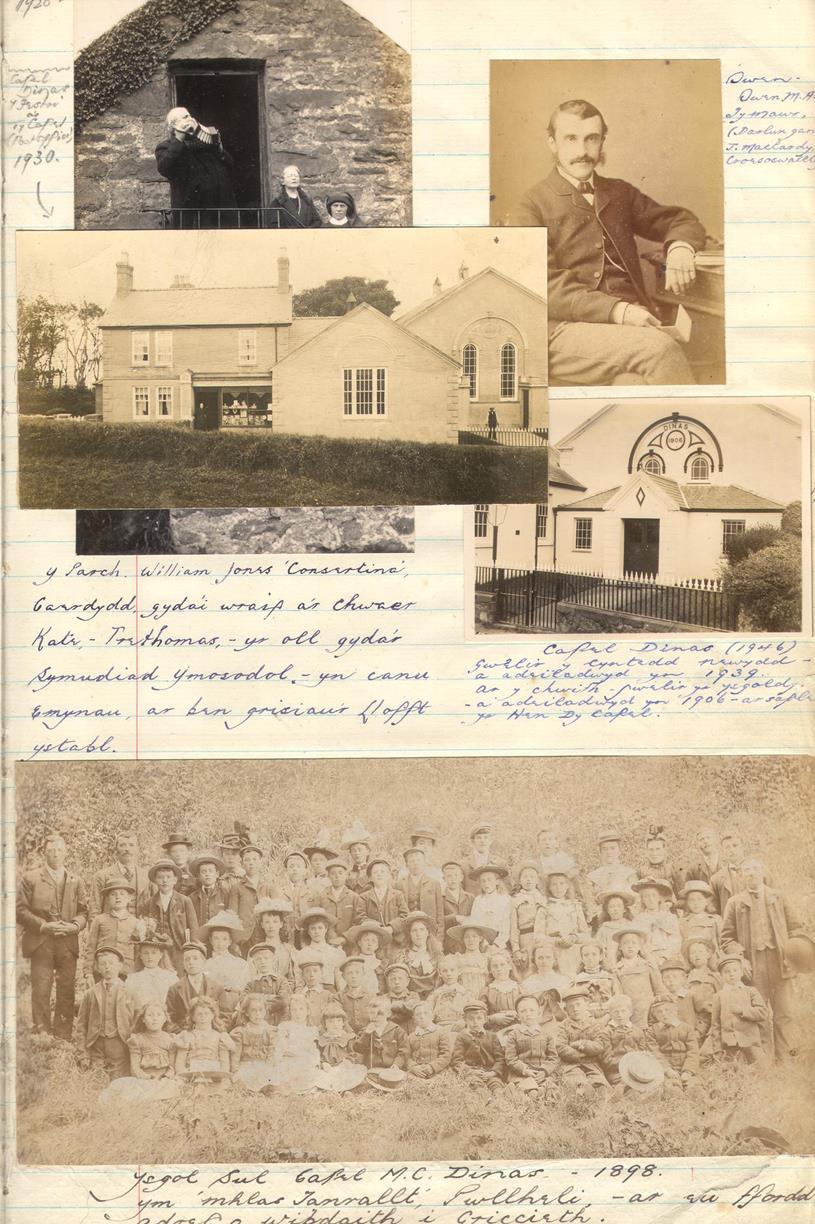 1920-
Capel
Dinas
a'r
1930.
Owen-
Owen M.A.
Tymawr,
(Darlun gan
J. Maclardy
DINAS
1906
Y Parch. William Jones 'Consertina',
Caerdydd, gyda'i wraig a'r Chwaer
Kate, - Trethomas, - yr oll gyda'r
Symudiad Ymosodol. - yn canu
Emynau, ar ben grisiau'r llofft
ystabl.
Capel Dinas (1946)
Gwelir y cyntedd newydd -
a adeiladwyd yn 1939.
ar y chwith - gwelir yr ysgoldy.
- a adeiladwyd yn 1906 - ar safle
yr Hen Dy Capel.
Ysgol Sul Capel M.C. Dinas - 1898.
ym 'mhlas Tanrallt', Pwllheli, - ar eu ffordd
adref o wibdaith i Griccieth.